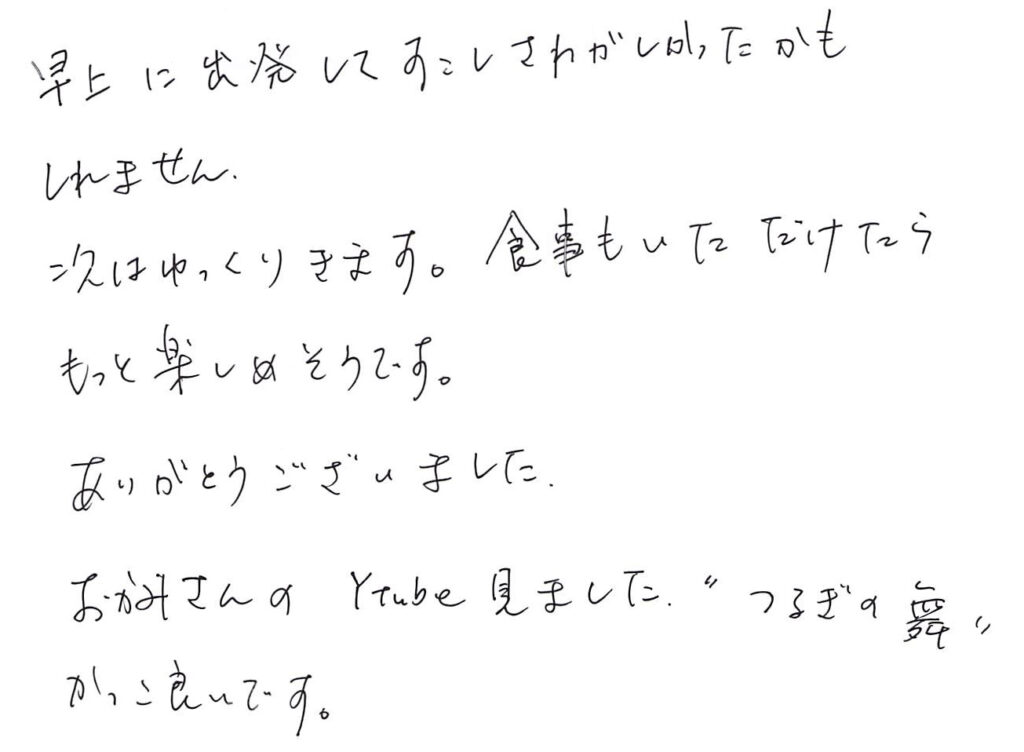 早上に出発してすこしさわがしかったかも
しれません.
次はゆっくりきます。食事もいただけたら
もっと楽しめそうです。
ありがとうございました.
おかみさんの Ytube見ました.〃つるぎの舞〃
かっこ良いです。